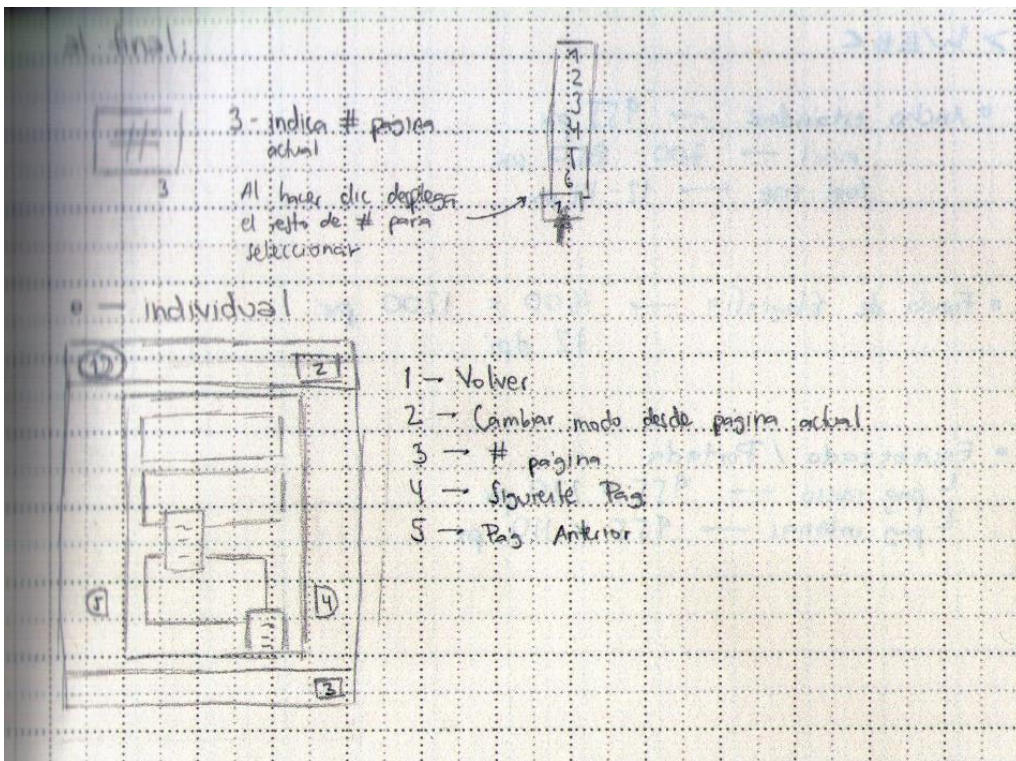 al final:
#
3
3 - indica # página
actual
Al hacer clic desplegar
el resto de # para
seleccionar
1
2
3
4
5
6
7
- individual
1
2
5
4
3
1 → Volver
2 → Cambiar modo desde pagina actual
3 → # página
4 → Siguiente Pag
5 → Pag Anterior